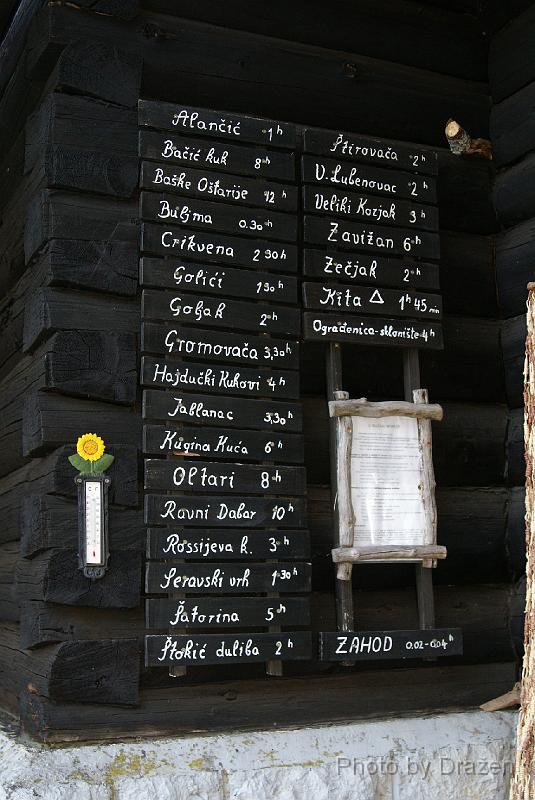 Alančić 1h
Bačić kuk 8h
Baške Oštarije 42h
Buljma 0.30h
Crikvena 2 30h
Golići 1 30h
Goljak 2h
Gromovača 3,30h
Hajdučki Kukovi 4h
Jablanac 3,30h
Kugina Kuća 6h
Oltari 8h
Ravni Dabar 10h
Rossijeva k. 3h
Seravski vrh 1.30h
Šatorina 5h
Štokić duliba 2h
Štirovača 2h
V. Lubenovac 2h
Veliki Kozjak 3h
Zavižan 6h
Zečjak 2h
Kita △ 1h 45 min
Ograđenica-sklonište 4h
ZAHOD 0.02-0.04h
Photo by Drazen